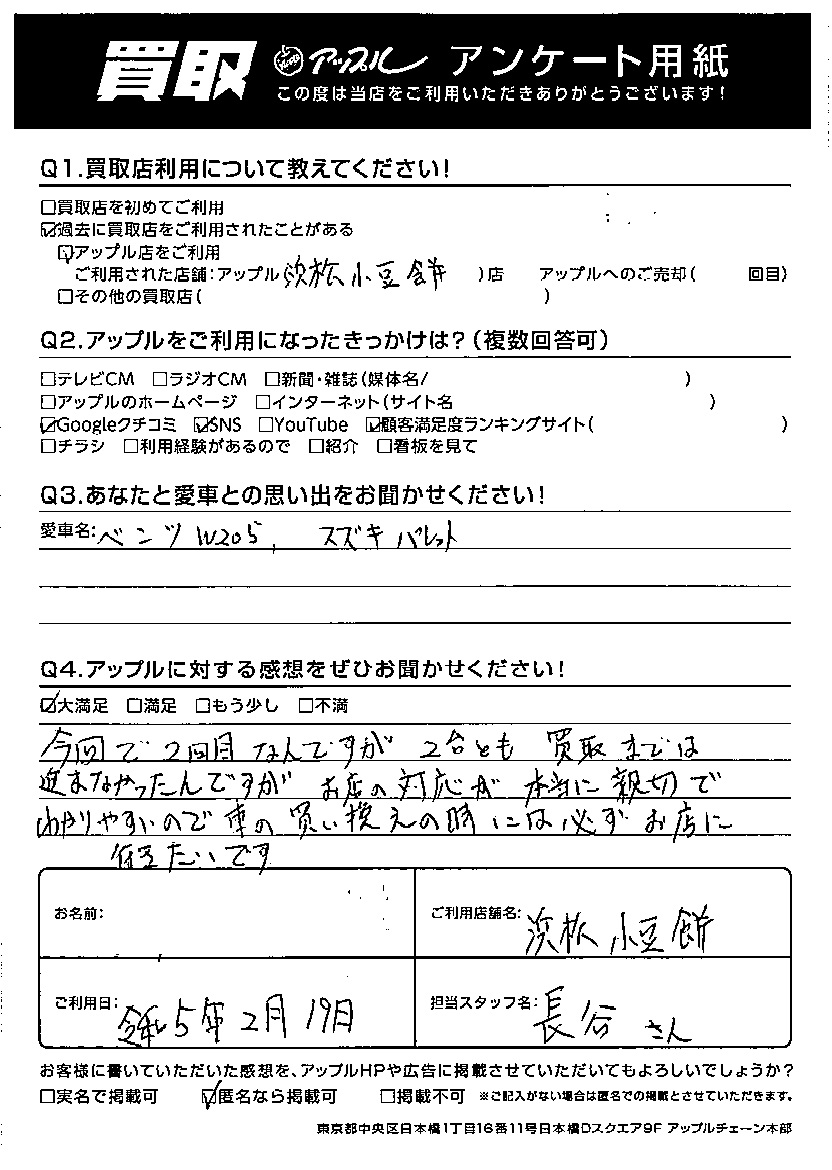 買取 アップル アンケート用紙
この度は当店をご利用いただきありがとうございます!
Q1.買取店利用について教えてください!
□買取店を初めてご利用
☑過去に買取店をご利用されたことがある
☑アップル店をご利用
ご利用された店舗:アップル 浜松小豆餅 )店 アップルへのご売却( 回目)
□その他の買取店( )
Q2.アップルをご利用になったきっかけは?(複数回答可)
□テレビCM □ラジオCM □新聞・雑誌(媒体名/ )
□アップルのホームページ □インターネット(サイト名 )
☑Googleクチコミ ☑SNS □YouTube ☑顧客満足度ランキングサイト( )
□チラシ □利用経験があるので □紹介 □看板を見て
Q3.あなたと愛車との思い出をお聞かせください!
愛車名:ベンツ W205, スズキ パレット
Q4.アップルに対する感想をぜひお聞かせください!
☑大満足 □満足 □もう少し □不満
今回で2回目なんですが 2台とも 買取までは
進まなかったんですが お店の対応が 本当に親切で
わかりやすいので車の買い換えの時には必ずお店に
行きたいです
お名前:
ご利用店舗名: 浜松 小豆餅
ご利用日: 令和5年2月19日
担当スタッフ名: 長谷 さん
お客様に書いていただいた感想を、アップルHPや広告に掲載させていただいてもよろしいでしょうか?
□実名で掲載可 ☑匿名なら掲載可 □掲載不可 ※ご記入がない場合は匿名での掲載とさせていただきます。
東京都中央区日本橋1丁目16番11号日本橋Dスクエア9F アップルチェーン本部